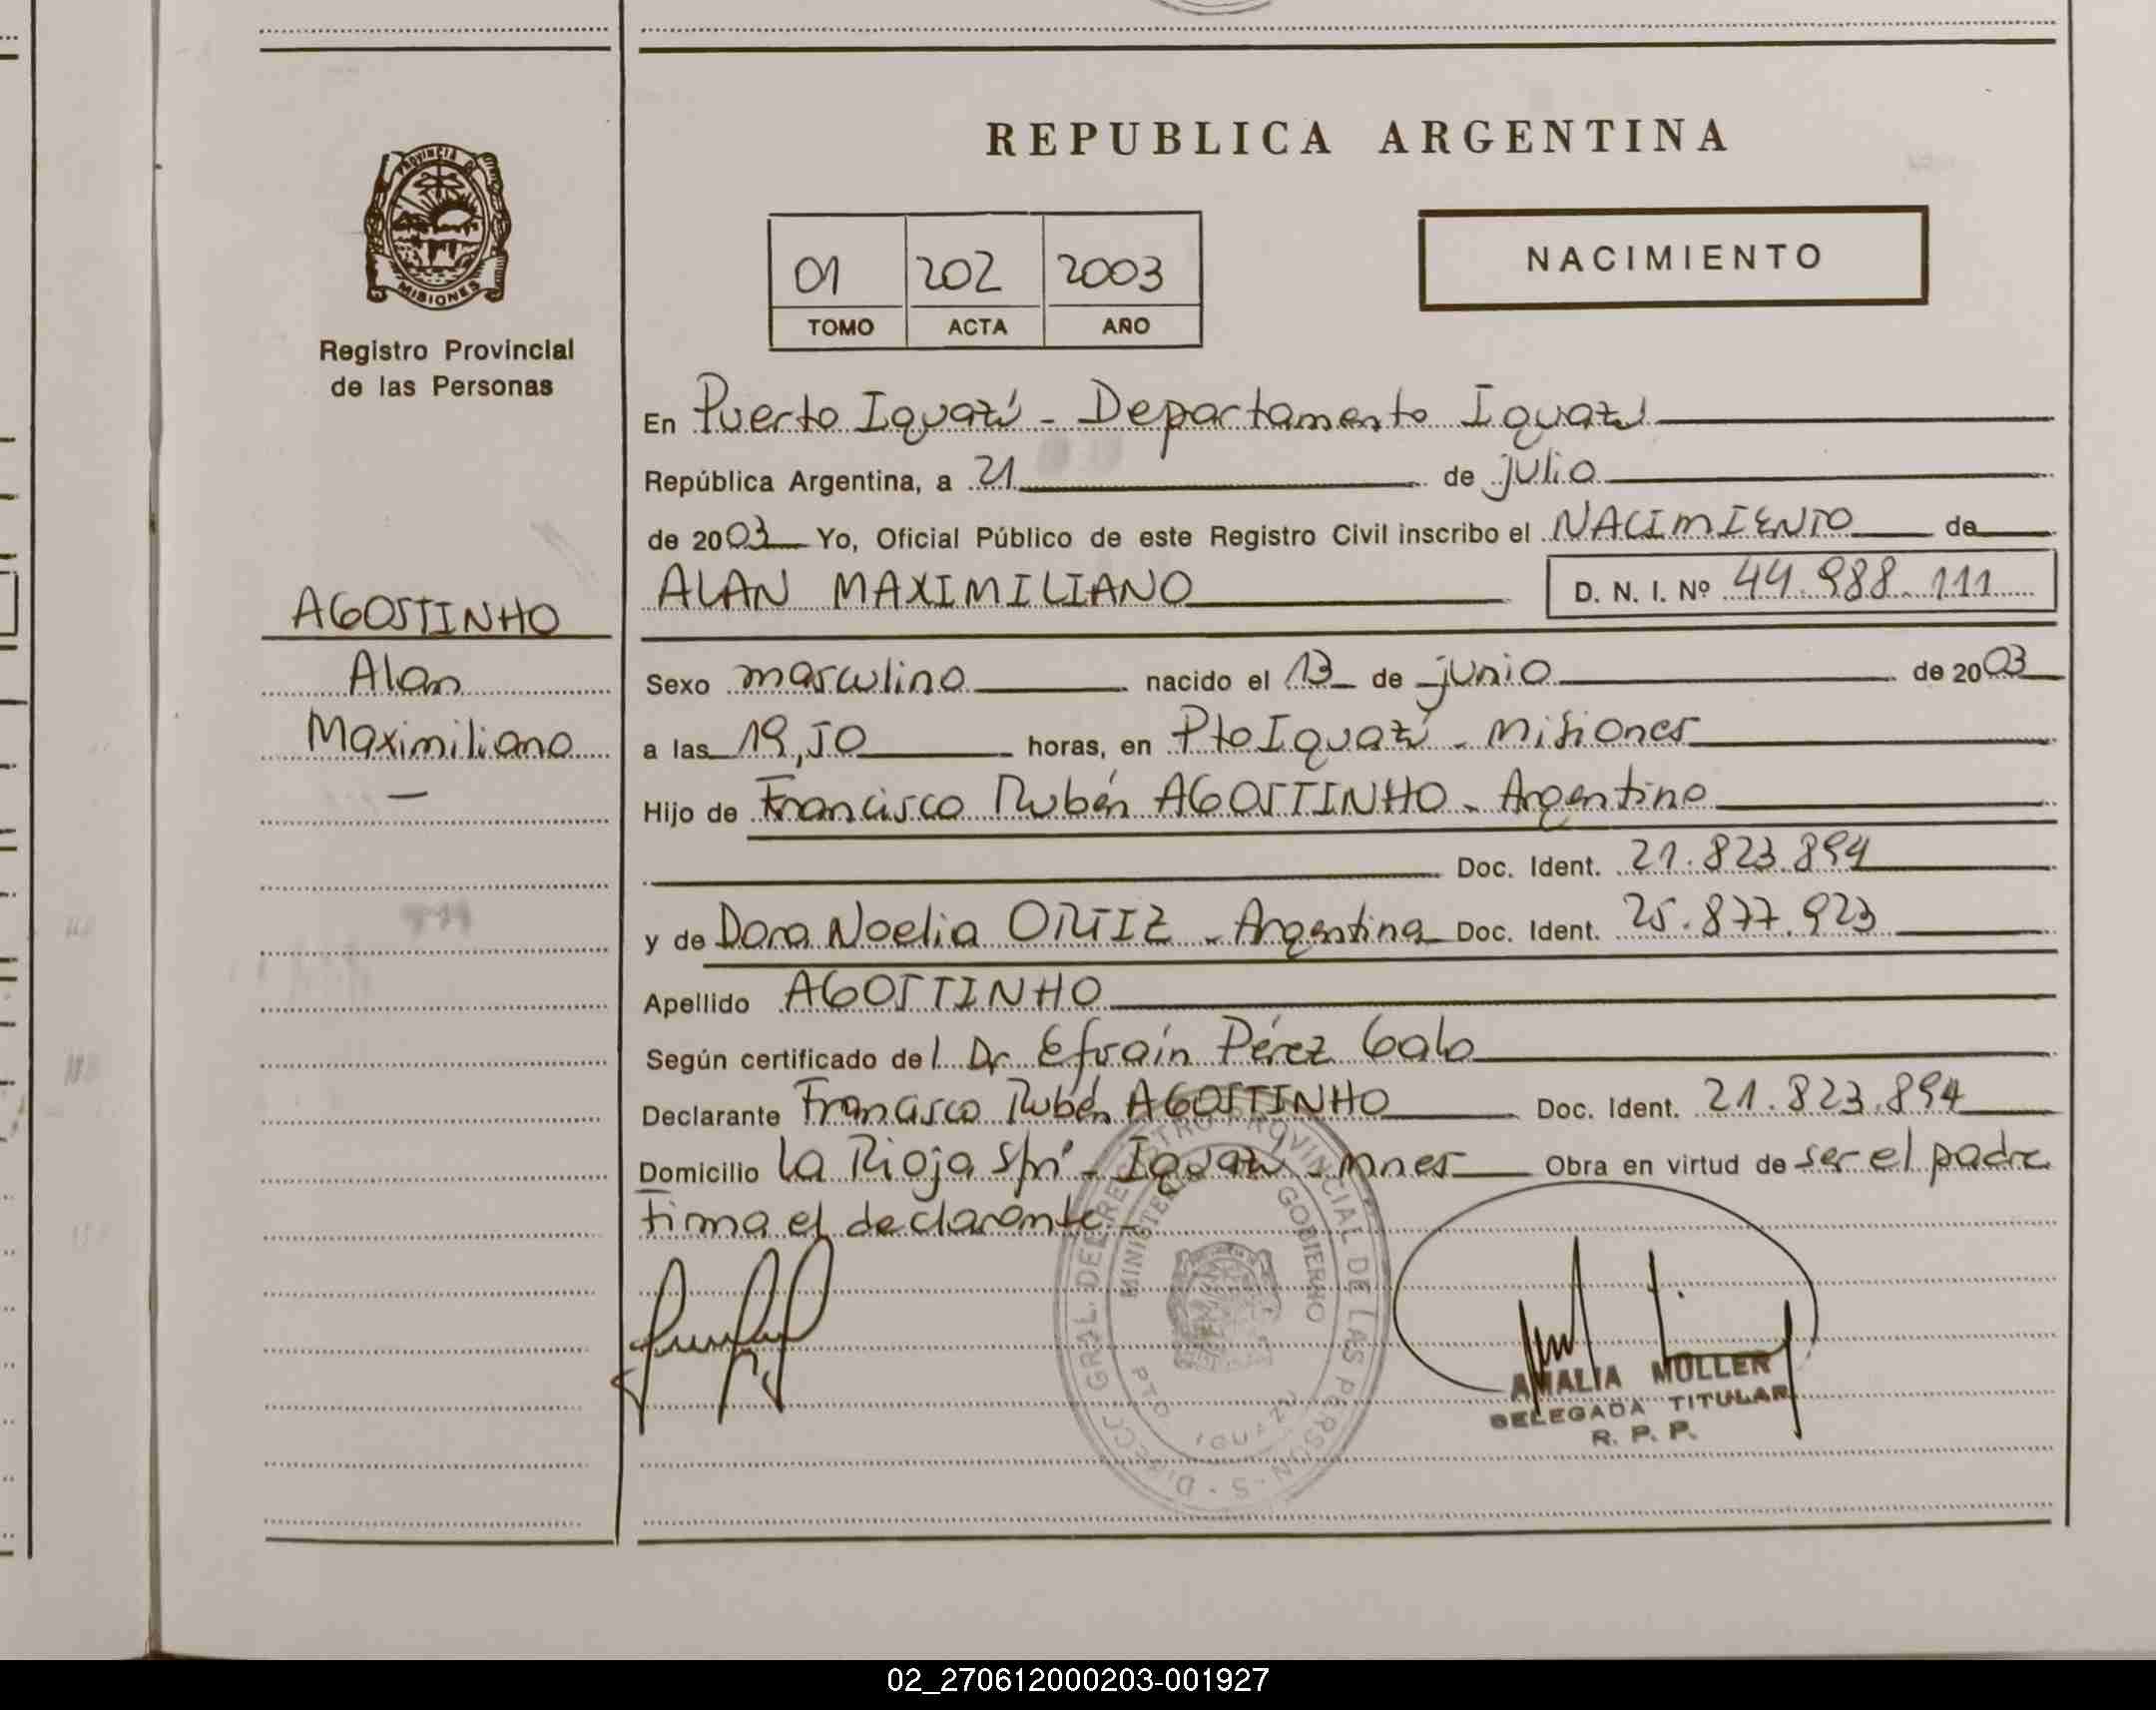 PROVINCIA DE
MISIONES
Registro Provincial
de las Personas
AGOSTINHO
Alan
Maximiliano
REPUBLICA ARGENTINA
NACIMIENTO
01 202 2003
TOMO ACTA AÑO
En Puerto Iguazú - Departamento Iguazú
República Argentina, a 21 de julio
de 2003 Yo, Oficial Público de este Registro Civil inscribo el NACIMIENTO de
ALAN MAXIMILIANO D. N. I. Nº 44.988.111
Sexo masculino nacido el 13 de junio de 2003
a las 19,50 horas, en Pto Iguazú - Misiones
Hijo de Francisco Rubén AGOSTINHO - Argentino
Doc. Ident. 21.823.894
y de Dora Noelia ORTIZ - Argentina Doc. Ident. 25.877.923
Apellido AGOSTINHO
Según certificado del Dr Efraín Pérez Galo
Declarante Francisco Rubén AGOSTINHO Doc. Ident. 21.823.894
Domicilio La Rioja - Iguazú - Mnes Obra en virtud de ser el padre
Firma el declarante -
DIRECC. GRAL. DEL REGISTRO PROVINCIAL DE LAS PERSONAS
MINISTERIO GOBIERNO
PTO IGUAZU
AMALIA MULLER
DELEGADA TITULAR
R. P. P.
02_270612000203-001927